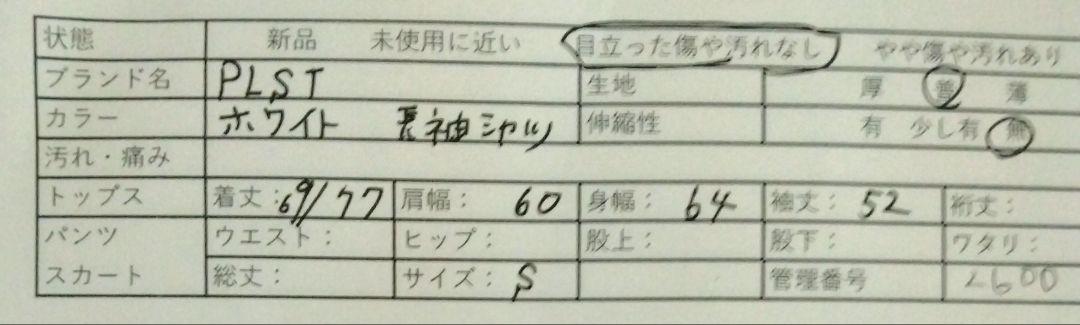 状態 新品 未使用に近い 目立った傷や汚れなし やや傷や汚れあり
ブランド名 PLST 生地 厚 普 薄
カラー ホワイト 長袖シャツ 伸縮性 有 少し有 無
汚れ・痛み
トップス 着丈:69/77 肩幅: 60 身幅: 64 袖丈: 52 裄丈:
パンツ ウエスト: ヒップ: 股上: 股下: ワタリ:
スカート 総丈: サイズ: S 管理番号 2600